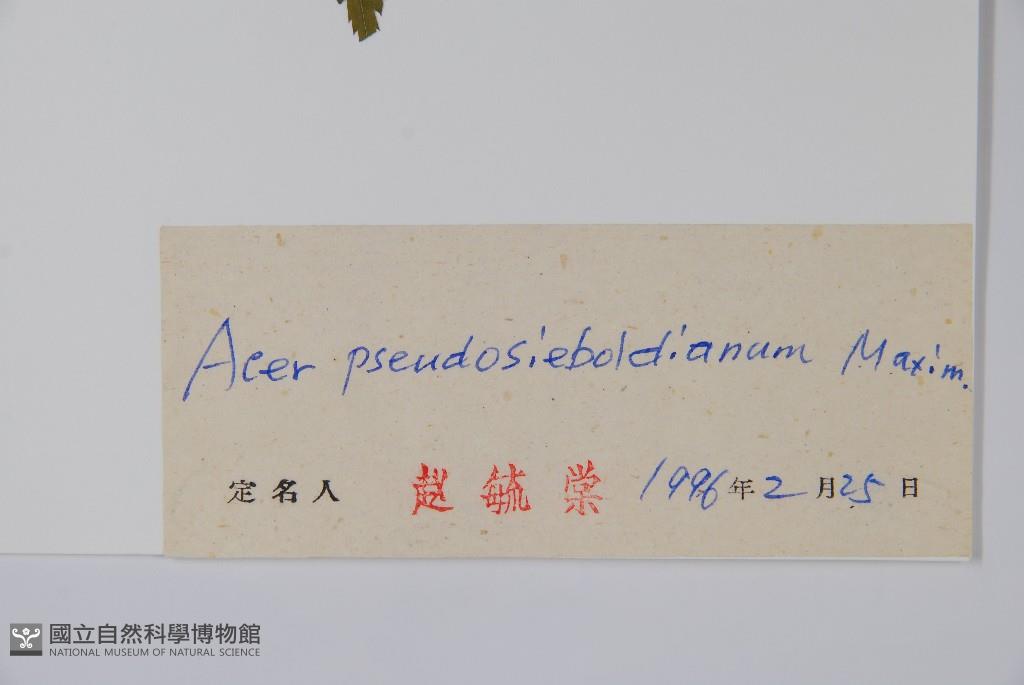 Acer pseudosieboldianum Maxim.
定名人 赵毓棠 1996年2月25日
國立自然科學博物館
NATIONAL MUSEUM OF NATURAL SCIENCE